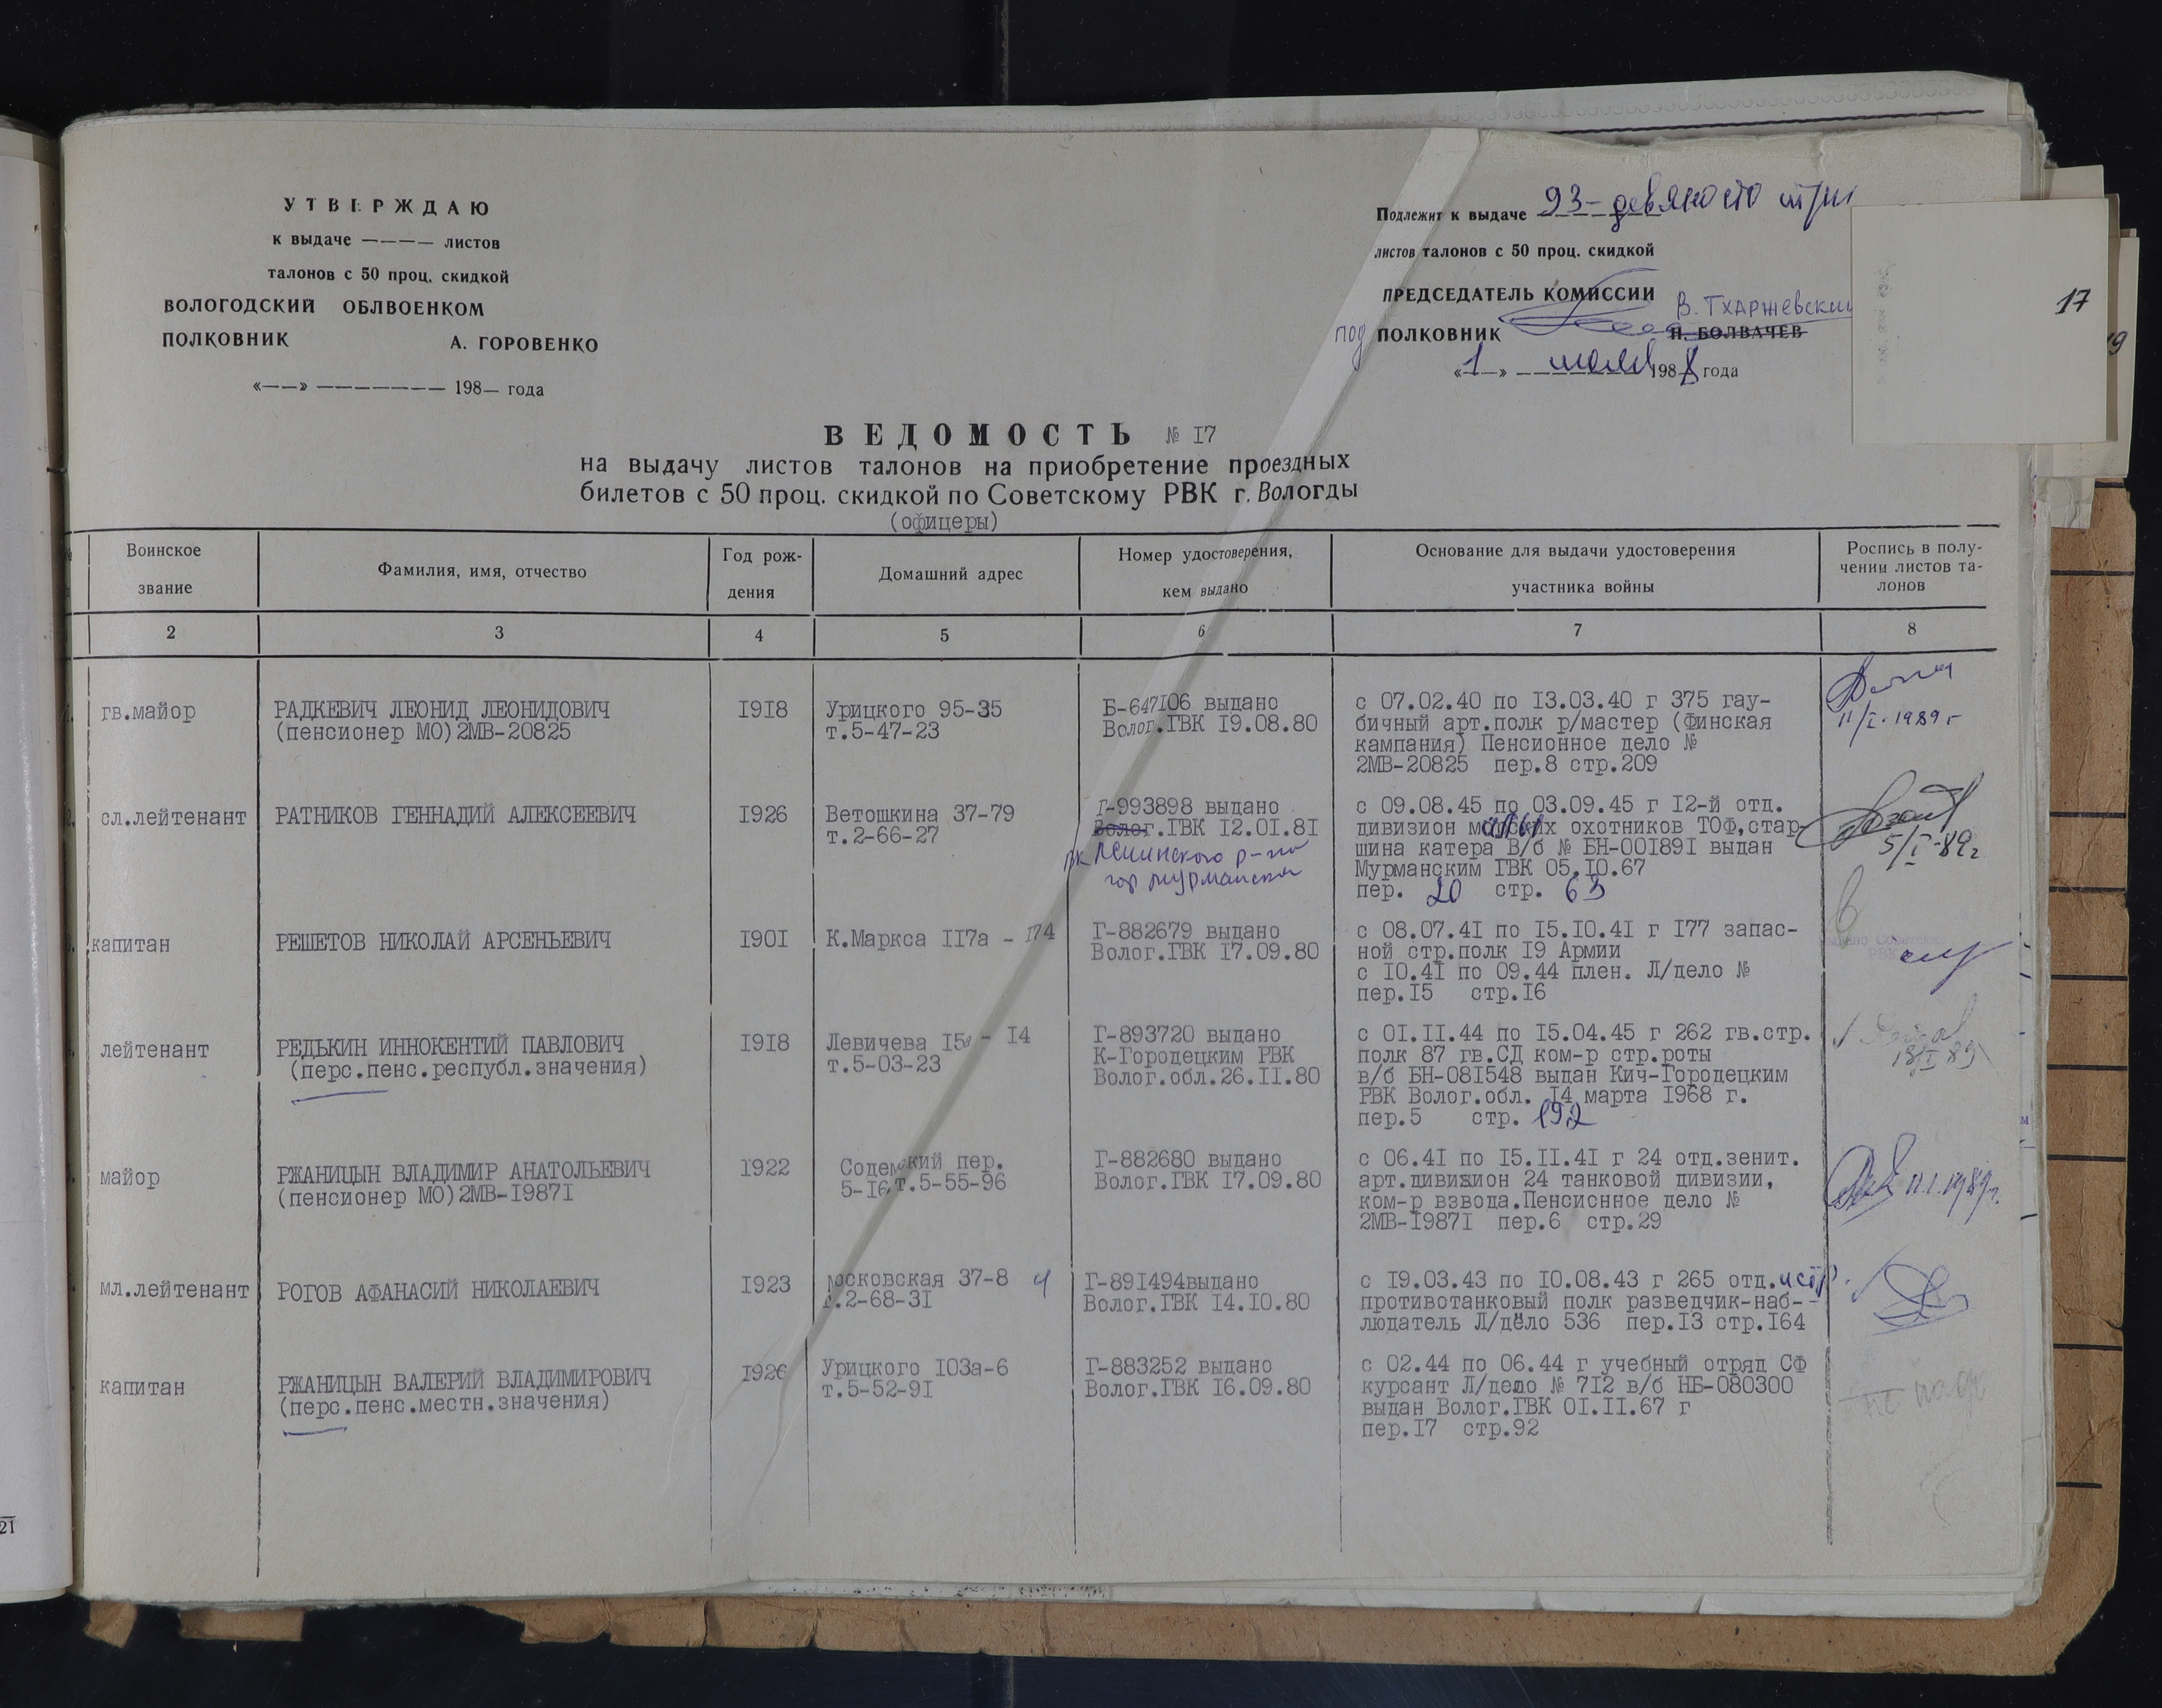 УТВЕРЖДАЮ
к выдаче ———— листов
талонов с 50 проц. скидкой
ВОЛОГОДСКИЙ ОБЛВОЕНКОМ
ПОЛКОВНИК А. ГОРОВЕНКО
«——» ——————— 198— года
Подлежит к выдаче 93- девяносто три
листов талонов с 50 проц. скидкой
ПРЕДСЕДАТЕЛЬ КОМИССИИ
В. Тхаржевский
под ПОЛКОВНИК Н. БОЛВАЧЕВ
«1» июля 1988 года
17
19
ВЕДОМОСТЬ № I7
на выдачу листов талонов на приобретение проездных
билетов с 50 проц. скидкой по Советскому РВК г. Вологды
(офицеры)
Воинское звание
Фамилия, имя, отчество
Год рож-
дения
Домашний адрес
Номер удостоверения,
кем выдано
Основание для выдачи удостоверения
участника войны
Роспись в полу-
чении листов та-
лонов
2 3 4 5 6 7 8
гв.майор
РАДКЕВИЧ ЛЕОНИД ЛЕОНИДОВИЧ
(пенсионер МО)2МВ-20825
I9I8
Урицкого 95-35
т.5-47-23
Б-647I06 выдано
Волог.ГВК I9.08.80
с 07.02.40 по I3.03.40 г 375 гау-
бичный арт.полк р/мастер (финская
кампания) Пенсионное дело №
2МВ-20825 пер.8 стр.209
11/I.1989г
сл.лейтенант
РАТНИКОВ ГЕННАДИЙ АЛЕКСЕЕВИЧ
I926
Ветошкина 37-79
т.2-66-27
Г-993898 выдано
Волог.ГВК I2.0I.8I
ВК Ленинского р-на
гор Мурманска
с 09.08.45 по 03.09.45 г I2-й отд.
дивизион малых охотников ТОФ,стар
шина катера В/б № БН-00I89I выдан
Мурманским ГВК 05.I0.67
пер. 20 стр. 63
5/I-89г
капитан
РЕШЕТОВ НИКОЛАЙ АРСЕНЬЕВИЧ
I90I
К.Маркса II7а - I74
Г-882679 выдано
Волог.ГВК I7.09.80
с 08.07.4I по I5.I0.4I г I77 запас-
ной стр.полк I9 Армии
с I0.4I по 09.44 плен. Л/дело №
пер.I5 стр.I6
лейтенант
РЕДЬКИН ИННОКЕНТИЙ ПАВЛОВИЧ
(перс.пенс.республ.значения)
I9I8
Левичева I5а - I4
т.5-03-23
Г-893720 выдано
К-Городецким РВК
Волог.обл.26.II.80
с 0I.II.44 по I5.04.45 г 262 гв.стр.
полк 87 гв.СД ком-р стр.роты
в/б БН-08I548 выдан Кич-Городецким
РВК Волог.обл. I4 марта I968 г.
пер.5 стр. 192
18/I 89
майор
РЖАНИЦЫН ВЛАДИМИР АНАТОЛЬЕВИЧ
(пенсионер МО)2МВ-I987I
I922
Содемский пер.
5-I6 т.5-55-96
Г-882680 выдано
Волог.ГВК I7.09.80
с 06.4I по I5.II.4I г 24 отд.зенит.
арт.дивизион 24 танковой дивизии,
ком-р взвода.Пенсионное дело №
2МВ-I987I пер.6 стр.29
11.1.1989г.
мл.лейтенант
РОГОВ АФАНАСИЙ НИКОЛАЕВИЧ
I923
Московская 37-8 4
т.2-68-3I
Г-89I494выдано
Волог.ГВК I4.I0.80
с I9.03.43 по I0.08.43 г 265 отд.истр.
противотанковый полк разведчик-наб-
людатель Л/дело 536 пер.I3 стр.I64
капитан
РЖАНИЦЫН ВАЛЕРИЙ ВЛАДИМИРОВИЧ
(перс.пенс.местн.значения)
I926
Урицкого I03а-6
т.5-52-9I
Г-883252 выдано
Волог.ГВК I6.09.80
с 02.44 по 06.44 г учебный отряд СФ
курсант Л/дело № 7I2 в/б НБ-080300
выдан Волог.ГВК 0I.II.67 г
пер.I7 стр.92
не надо
21